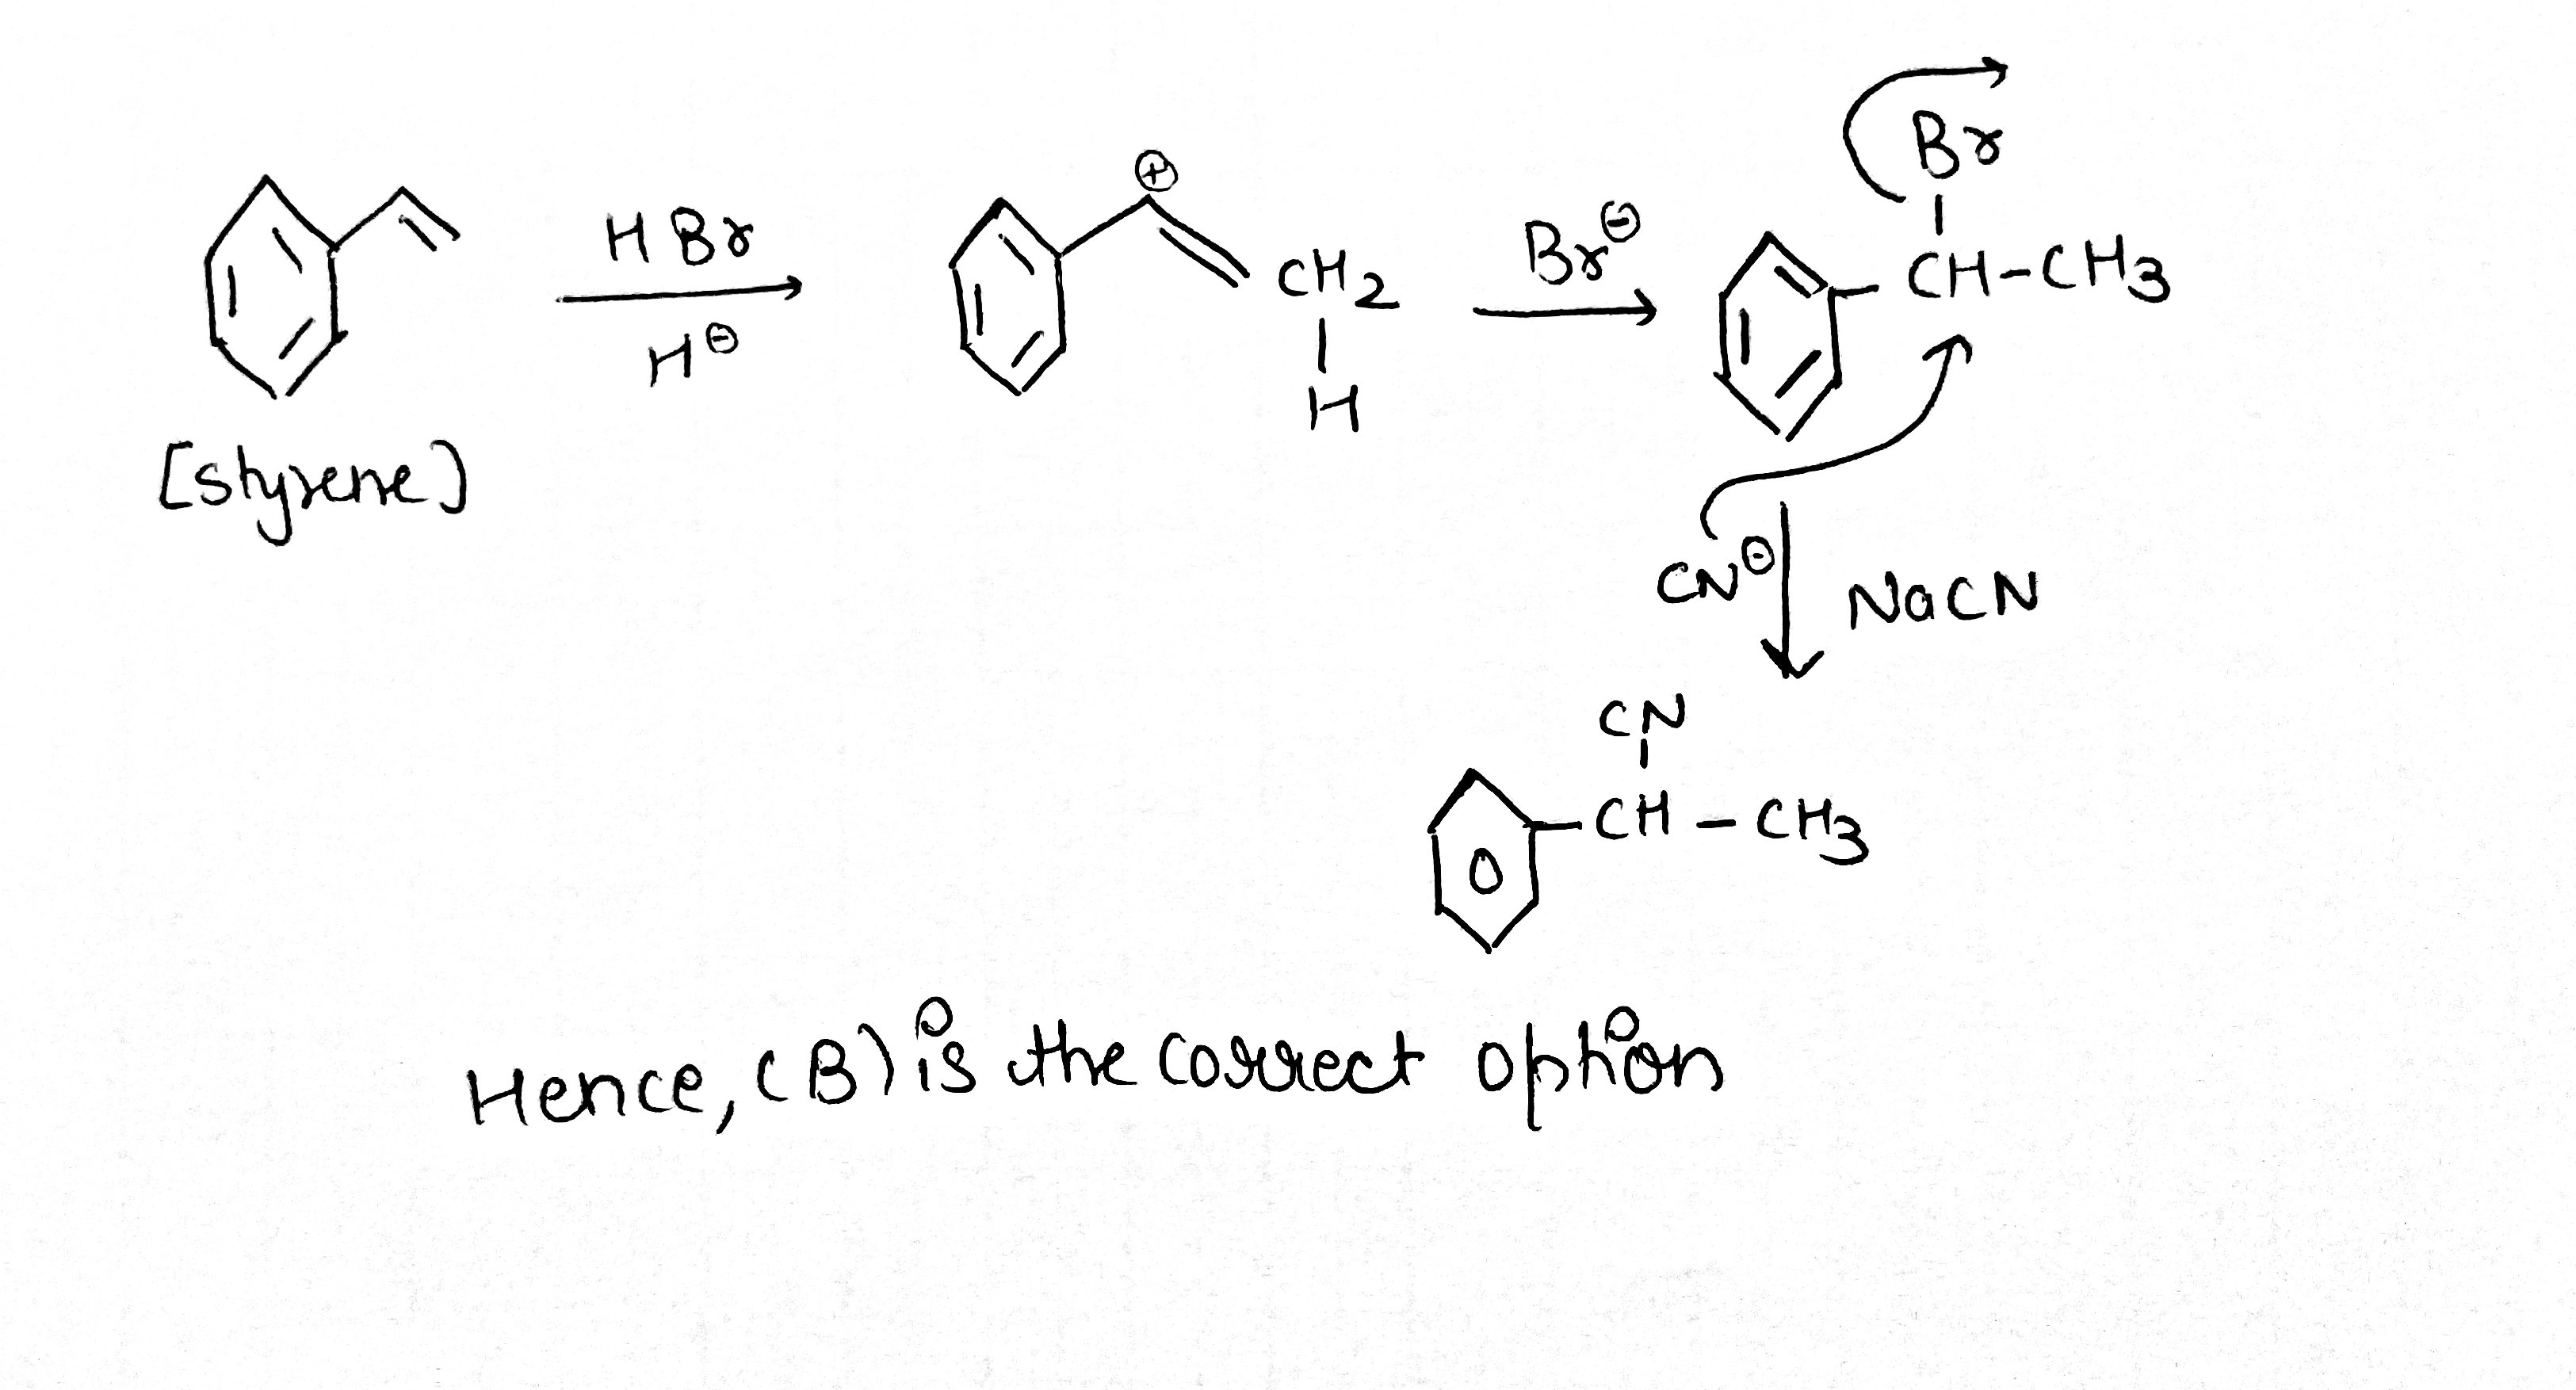 HBr
H⊖
[styrene]
⊕
CH2
H
Br⊖
Br
CH-CH3
CN⊖
NaCN
CN
CH - CH3
Hence, (B) is the correct option